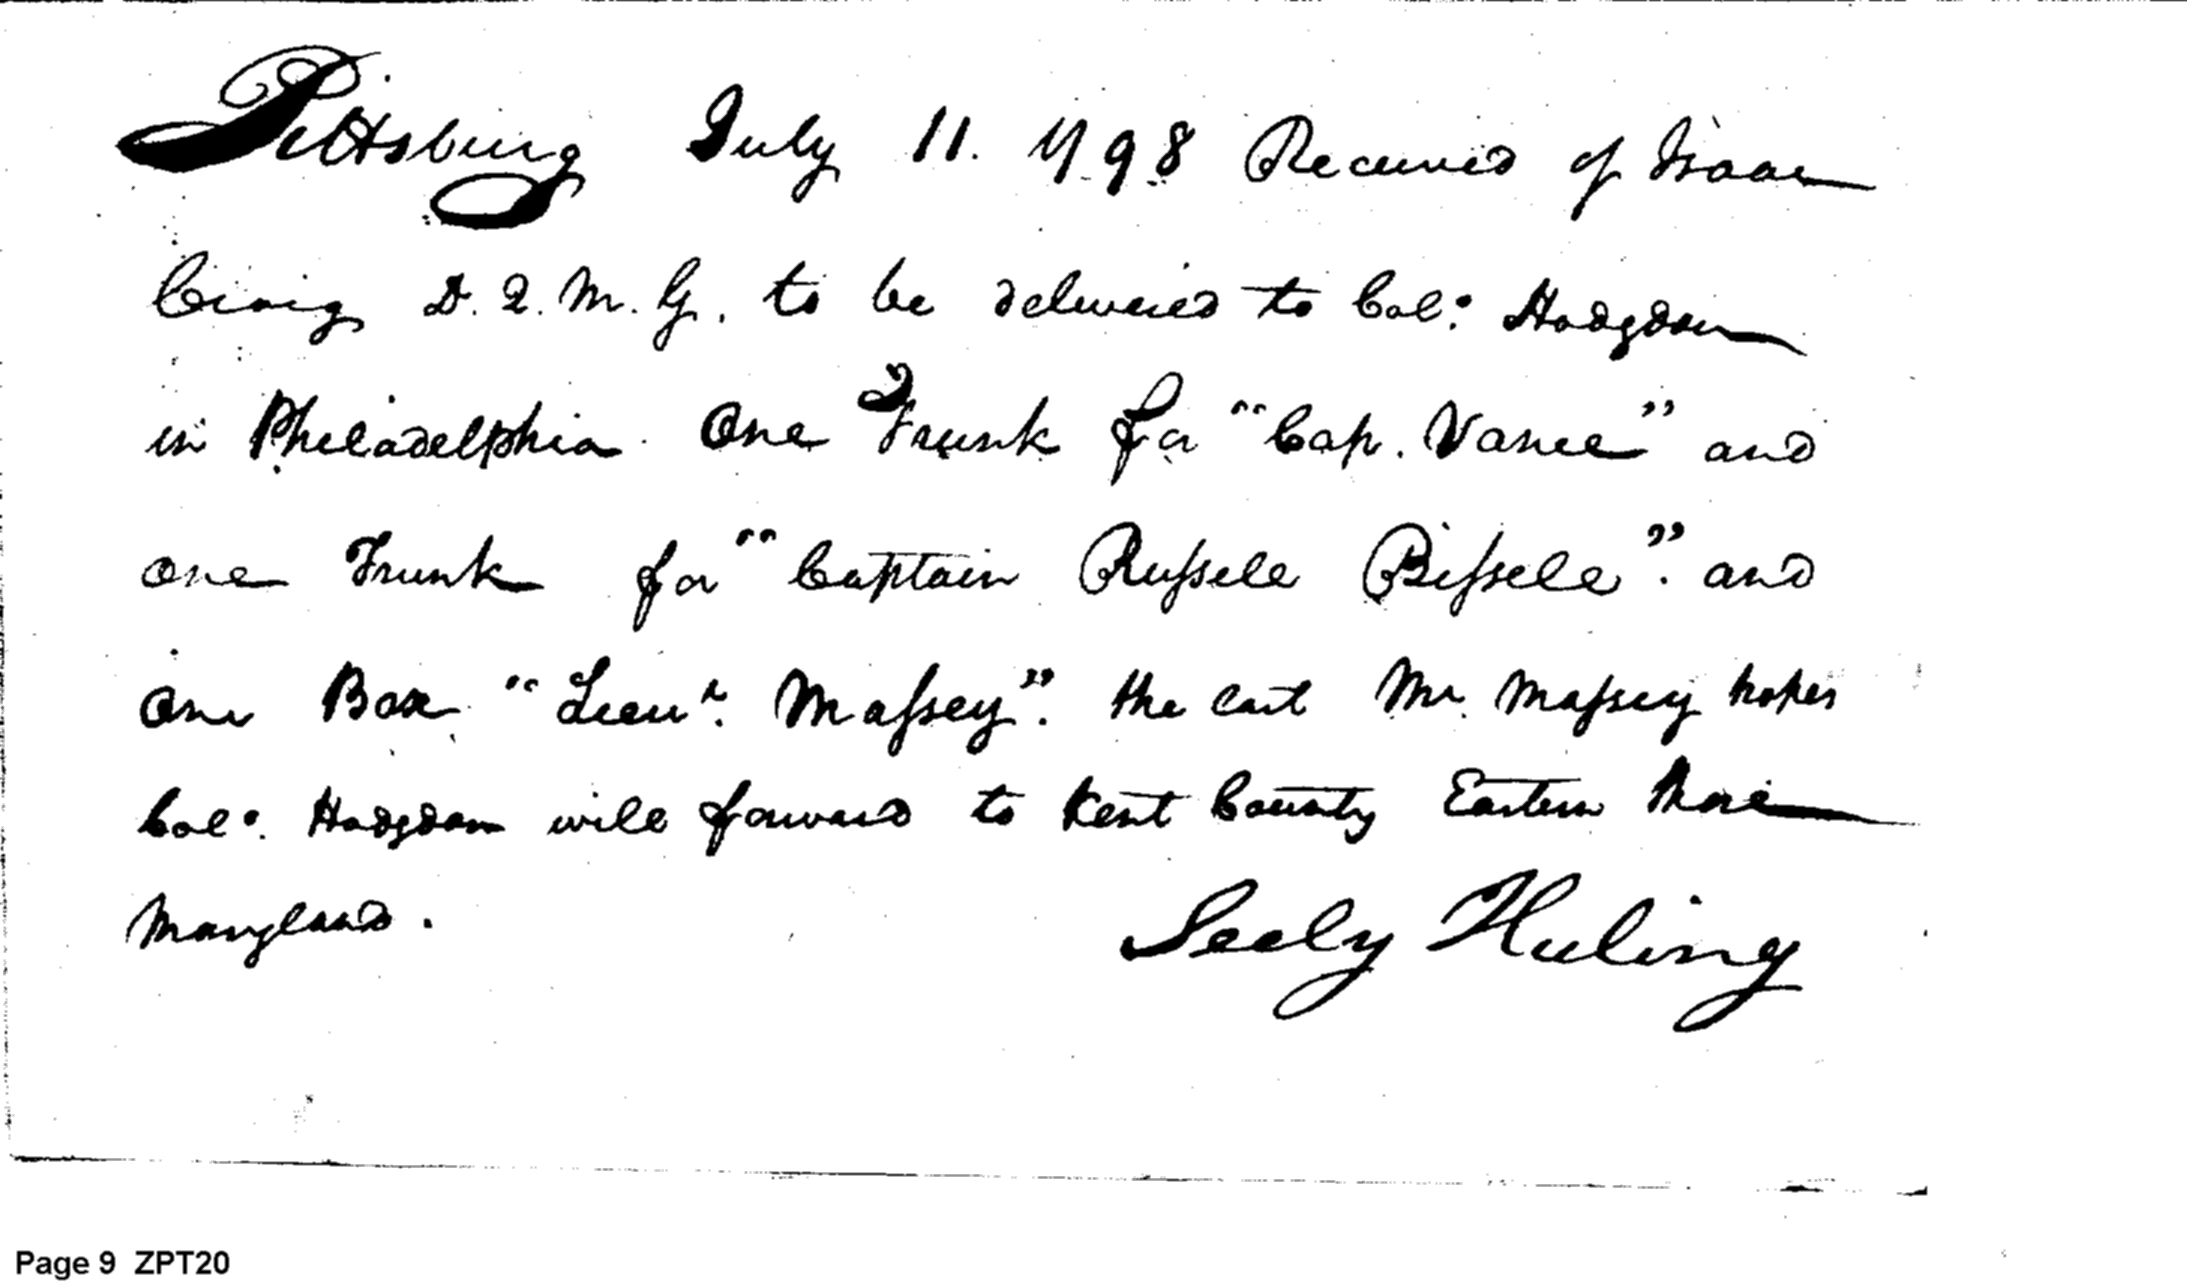 Pittsburg July 11. 1798 Received of Isaac
Craig D. Q. M. G. to be delivered to Col: Hodgdon
in Philadelphia. One Trunk for "Cap. Vance" and
one Trunk for "Captain Russell Bissell". and
One Box "Lieu.t Massey". the last Mr. Massey hopes
Col: Hodgdon will forward to Kent County Eastern Shore
Maryland.
Seely Huling
Page 9 ZPT20